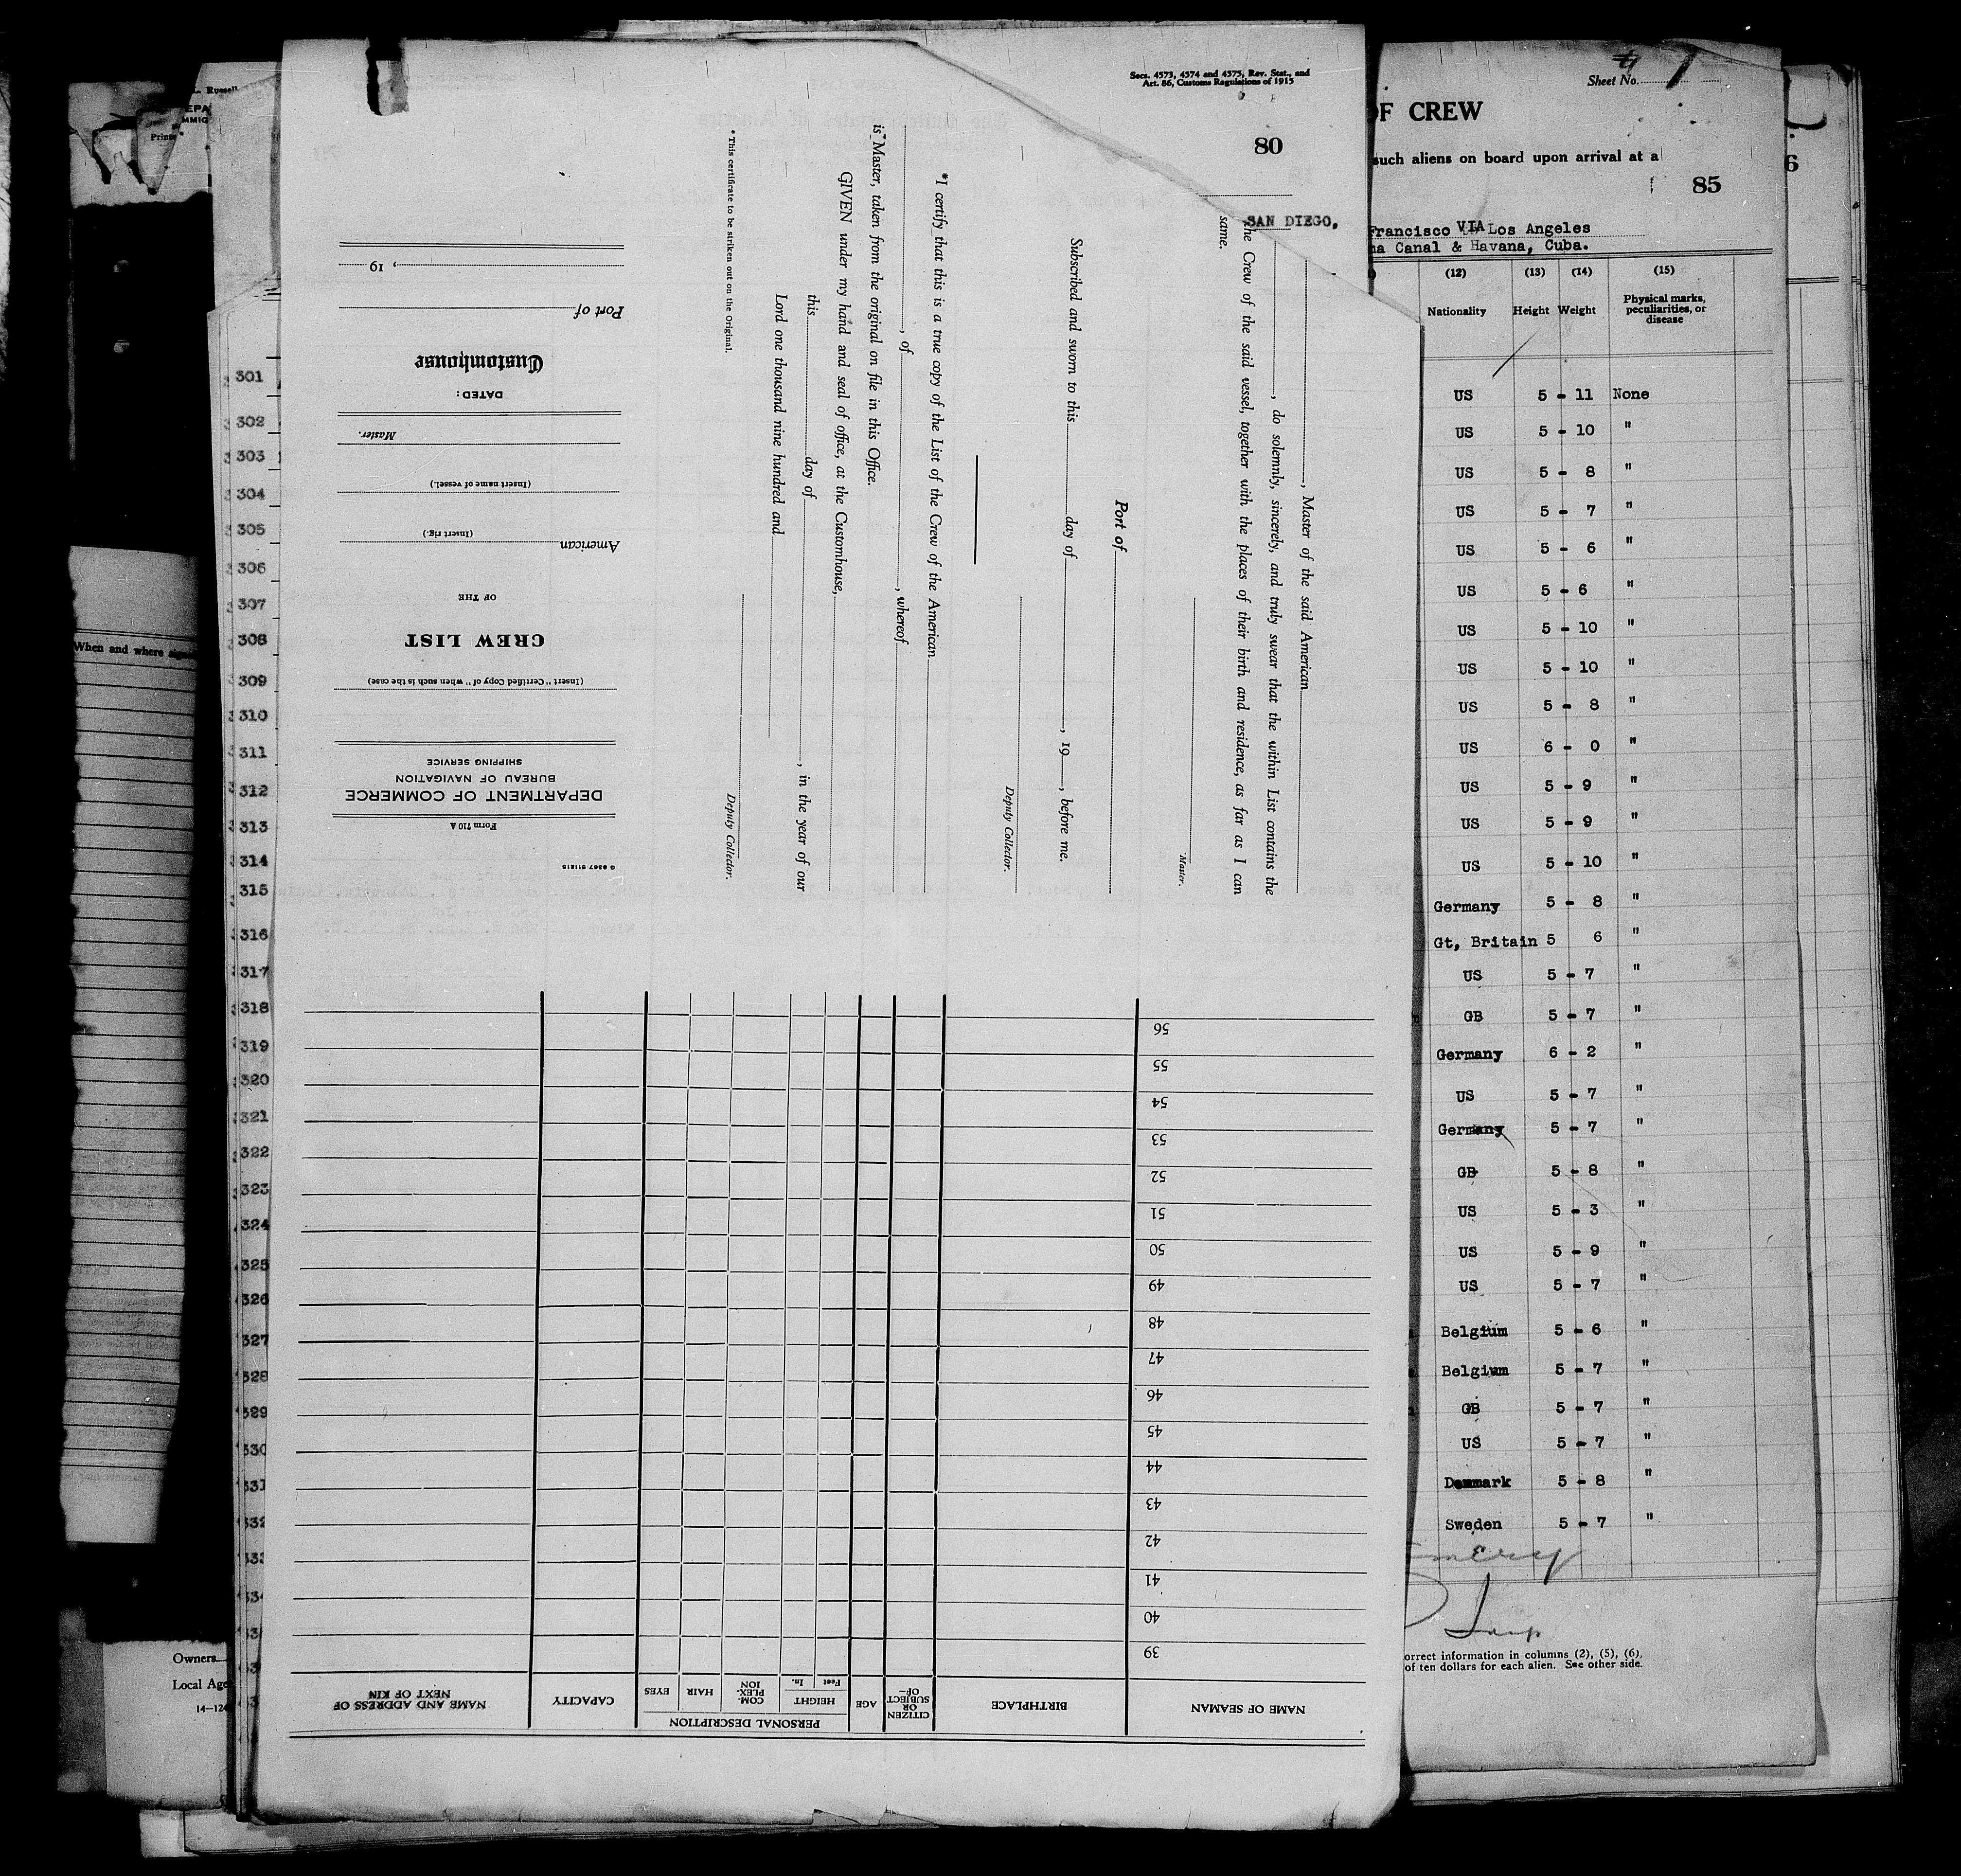 Secs. 4573, 4574 and 4575, Rev. Stat., and
Art. 86, Customs Regulations of 1915
80
SAN DIEGO,
, Master of the said American
, do solemnly, sincerely, and truly swear that the within List contains the
the Crew of the said vessel, together with the places of their birth and residence, as far as I can
same.
Master.
Port of
Subscribed and sworn to this day of , 19 , before me.
Deputy Collector.
*I certify that this is a true copy of the List of the Crew of the American
, of , whereof
is Master, taken from the original on file in this Office.
GIVEN under my hand and seal of office, at the Customhouse,
this day of , in the year of our
Lord one thousand nine hundred and
Deputy Collector.
*This certificate to be striken out on the Original.
G 6367-511815
Form 710 A
DEPARTMENT OF COMMERCE
BUREAU OF NAVIGATION
SHIPPING SERVICE
(Insert "Certified Copy of" when such is the case)
CREW LIST
OF THE
American
(Insert rig.)
(Insert name of vessel.)
Master.
DATED:
Customhouse
Port of
, 19
NAME OF SEAMAN
BIRTHPLACE
CITIZEN OR SUBJECT OF—
AGE
PERSONAL DESCRIPTION
HEIGHT
Feet In.
COM-PLEX-ION
HAIR
EYES
CAPACITY
NAME AND ADDRESS OF NEXT OF KIN
39
40
41
42
43
44
45
46
47
48
49
50
51
52
53
54
55
56
Russell
Print
When and where
Owners
Local Age
301
302
303
304
305
306
307
308
309
310
311
312
313
314
315
316
317
318
319
320
321
322
323
324
325
326
327
328
329
330
331
332
Sheet No. 7
OF CREW
such aliens on board upon arrival at a
85
6
Francisco VIA Los Angeles
na Canal & Havana, Cuba.
(12) (13) (14) (15)
Nationality Height Weight Physical marks, peculiarities, or disease
US 5 - 11 None
US 5 - 10 "
US 5 - 8 "
US 5 - 7 "
US 5 - 6 "
US 5 - 6 "
US 5 - 10 "
US 5 - 10 "
US 5 - 8 "
US 6 - 0 "
US 5 - 9 "
US 5 - 9 "
US 5 - 10 "
Germany 5 - 8 "
Gt, Britain 5 6 "
US 5 - 7 "
GB 5 - 7 "
Germany 6 - 2 "
US 5 - 7 "
Germany 5 - 7 "
GB 5 - 8 "
US 5 - 3 "
US 5 - 9 "
US 5 - 7 "
Belgium 5 - 6 "
Belgium 5 - 7 "
GB 5 - 7 "
US 5 - 7 "
Denmark 5 - 8 "
Sweden 5 - 7 "
orrect information in columns (2), (5), (6),
of ten dollars for each alien. See other side.